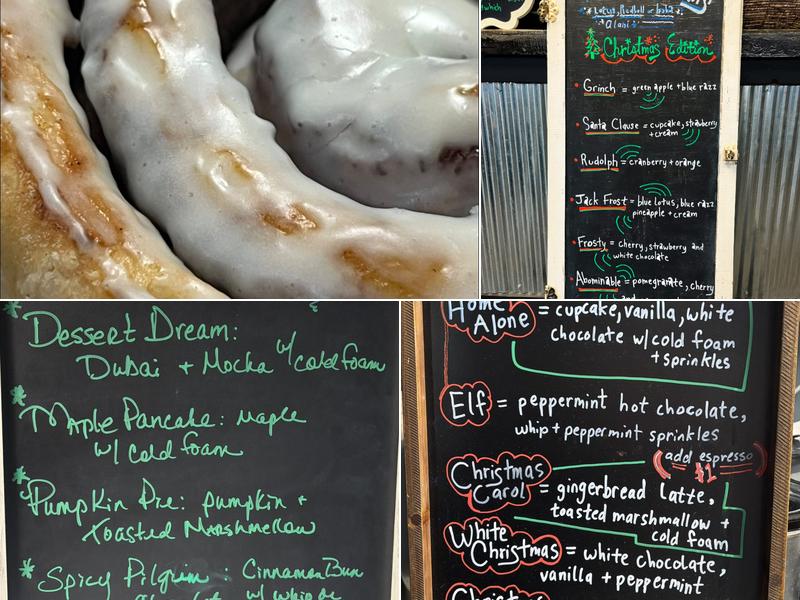 which
Lotus, Redbull or boba
Alani
Christmas Edition
Grinch = green apple + blue razz
Santa Clause = cupcake, strawberry
+ cream
Rudolph = cranberry + orange
Jack Frost = blue lotus, blue razz
pineapple + cream
Frosty = cherry, strawberry and
white chocolate
Abominable = pomegranate, cherry
Dessert Dream:
Dubai + Mocha w/ cold foam
* Maple Pancake: maple
w/ cold foam
* Pumpkin Pie: pumpkin +
Toasted Marshmellow
* Spicy Pilgrim : Cinnamon Bun
Home
Alone = cupcake, vanilla, white
chocolate w/ cold foam
+ sprinkles
Elf = peppermint hot chocolate,
whip + peppermint sprinkles
(add espresso
$1)
Christmas
Carol = gingerbread latte,
toasted marshmallow +
cold foam
White
Christmas = white chocolate,
vanilla + peppermint